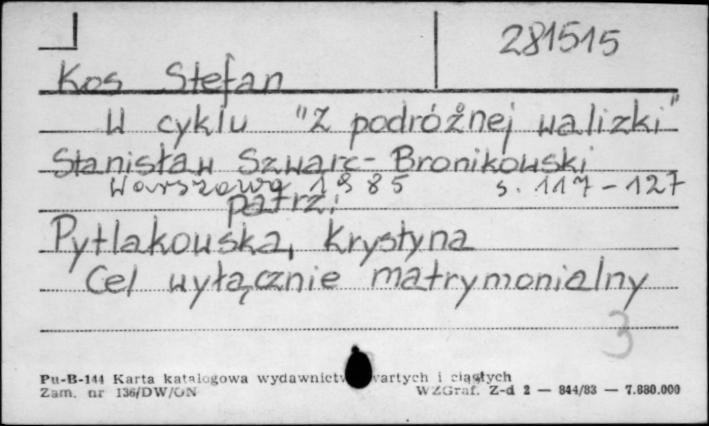 281515
Kos Stefan
W cyklu "Z podróżnej walizki"
Stanisław Szwarc-Bronikowski
Warszawa 1985 s. 117-127
patrz:
Pytlakowska, Krystyna
Cel wyłącznie matrymonialny
3
Pu-B-144 Karta katalogowa wydawnictw wartych i ciągłych
Zam. nr 136/DW/ON WZGraf. Z-d 2 — 844/83 — 7.880.000